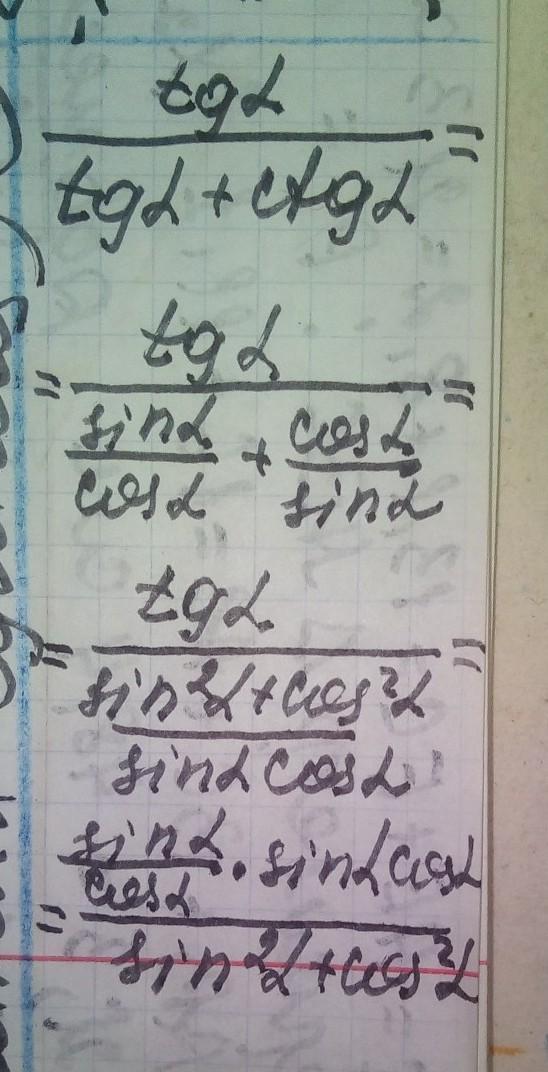 tgα
tgα + ctgα =
= tgα
sinα + cosα =
cosα sinα
= tgα =
sin²α + cos²α
sinα cosα
sinα · sinα cosα
= cosα
sin²α + cos²α